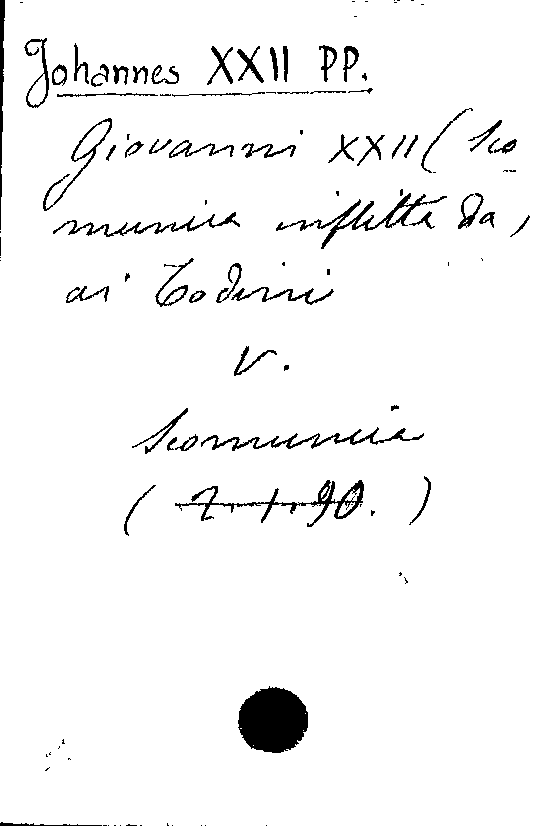 Johannes XXII PP.
Giovanni XXII (Sco
munica inflitta da,
ai Todini
V.
Scomunica
( 7.1.90. )